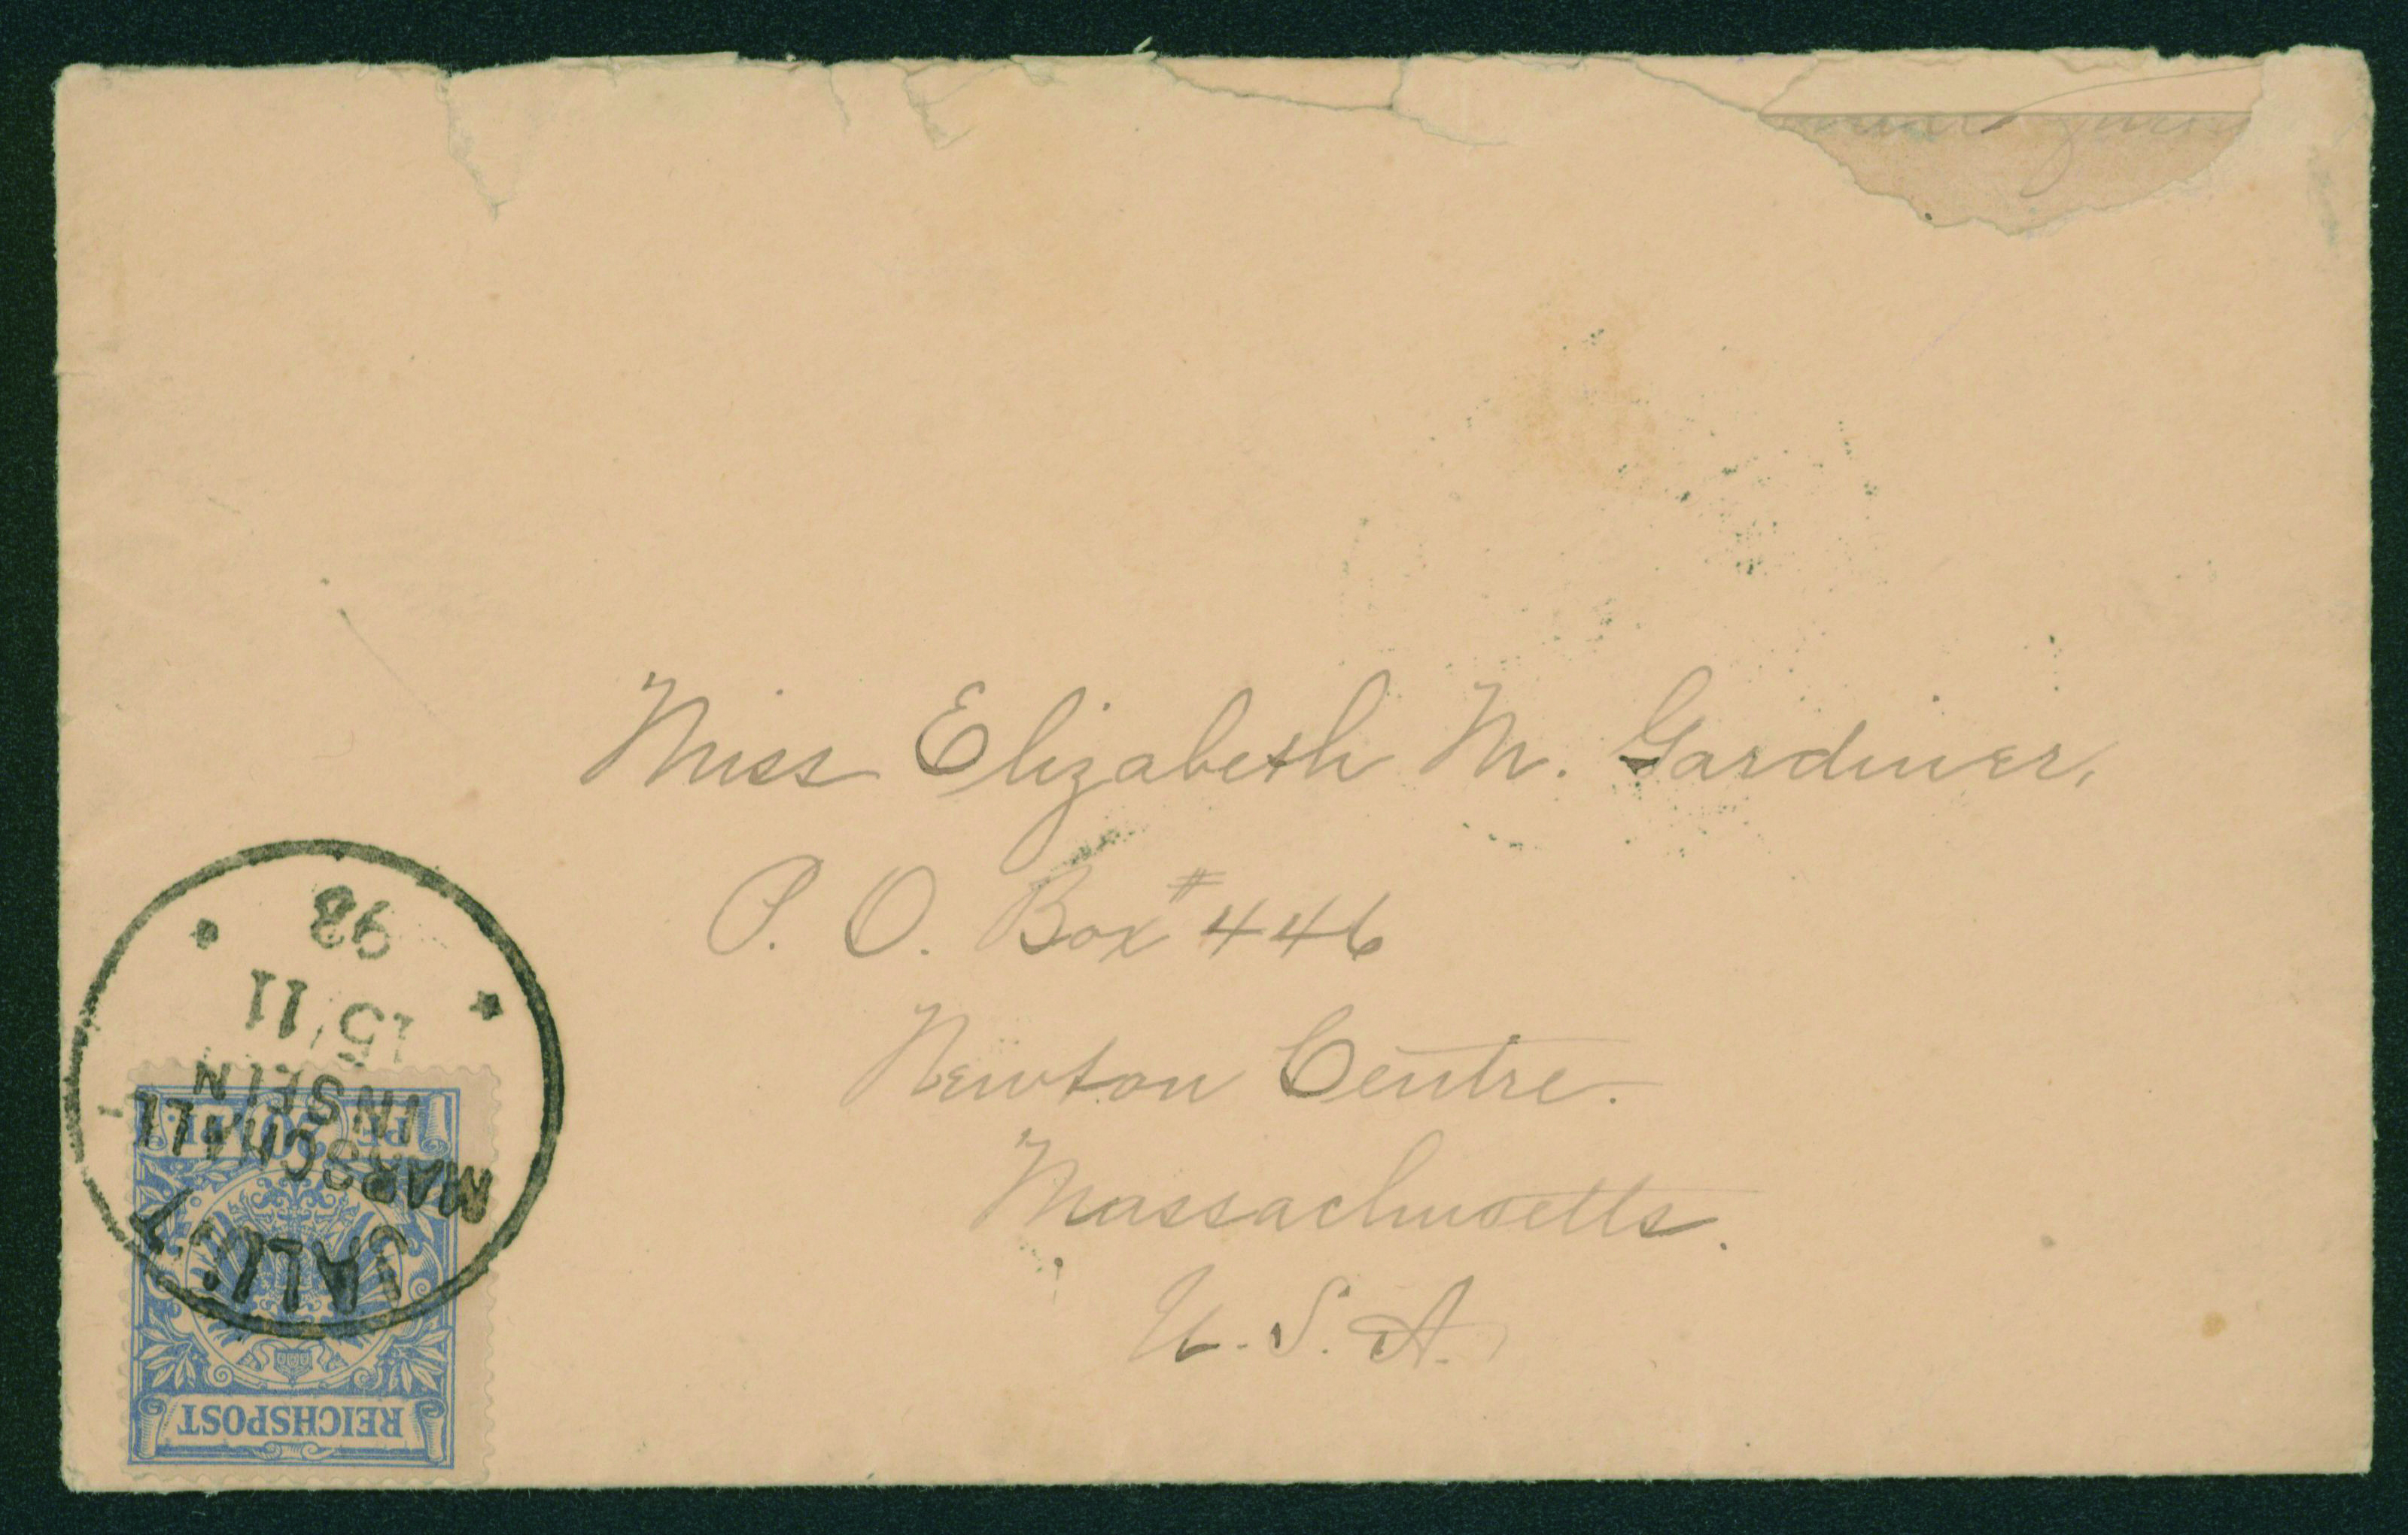 Miss Elizabeth M. Gardiner,
P. O. Box # 446
Newton Centre.
Massachusetts.
U. S. A.
JALUIT
MARSCHALL
INSELN
15/11
98
20 PF
REICHSPOST